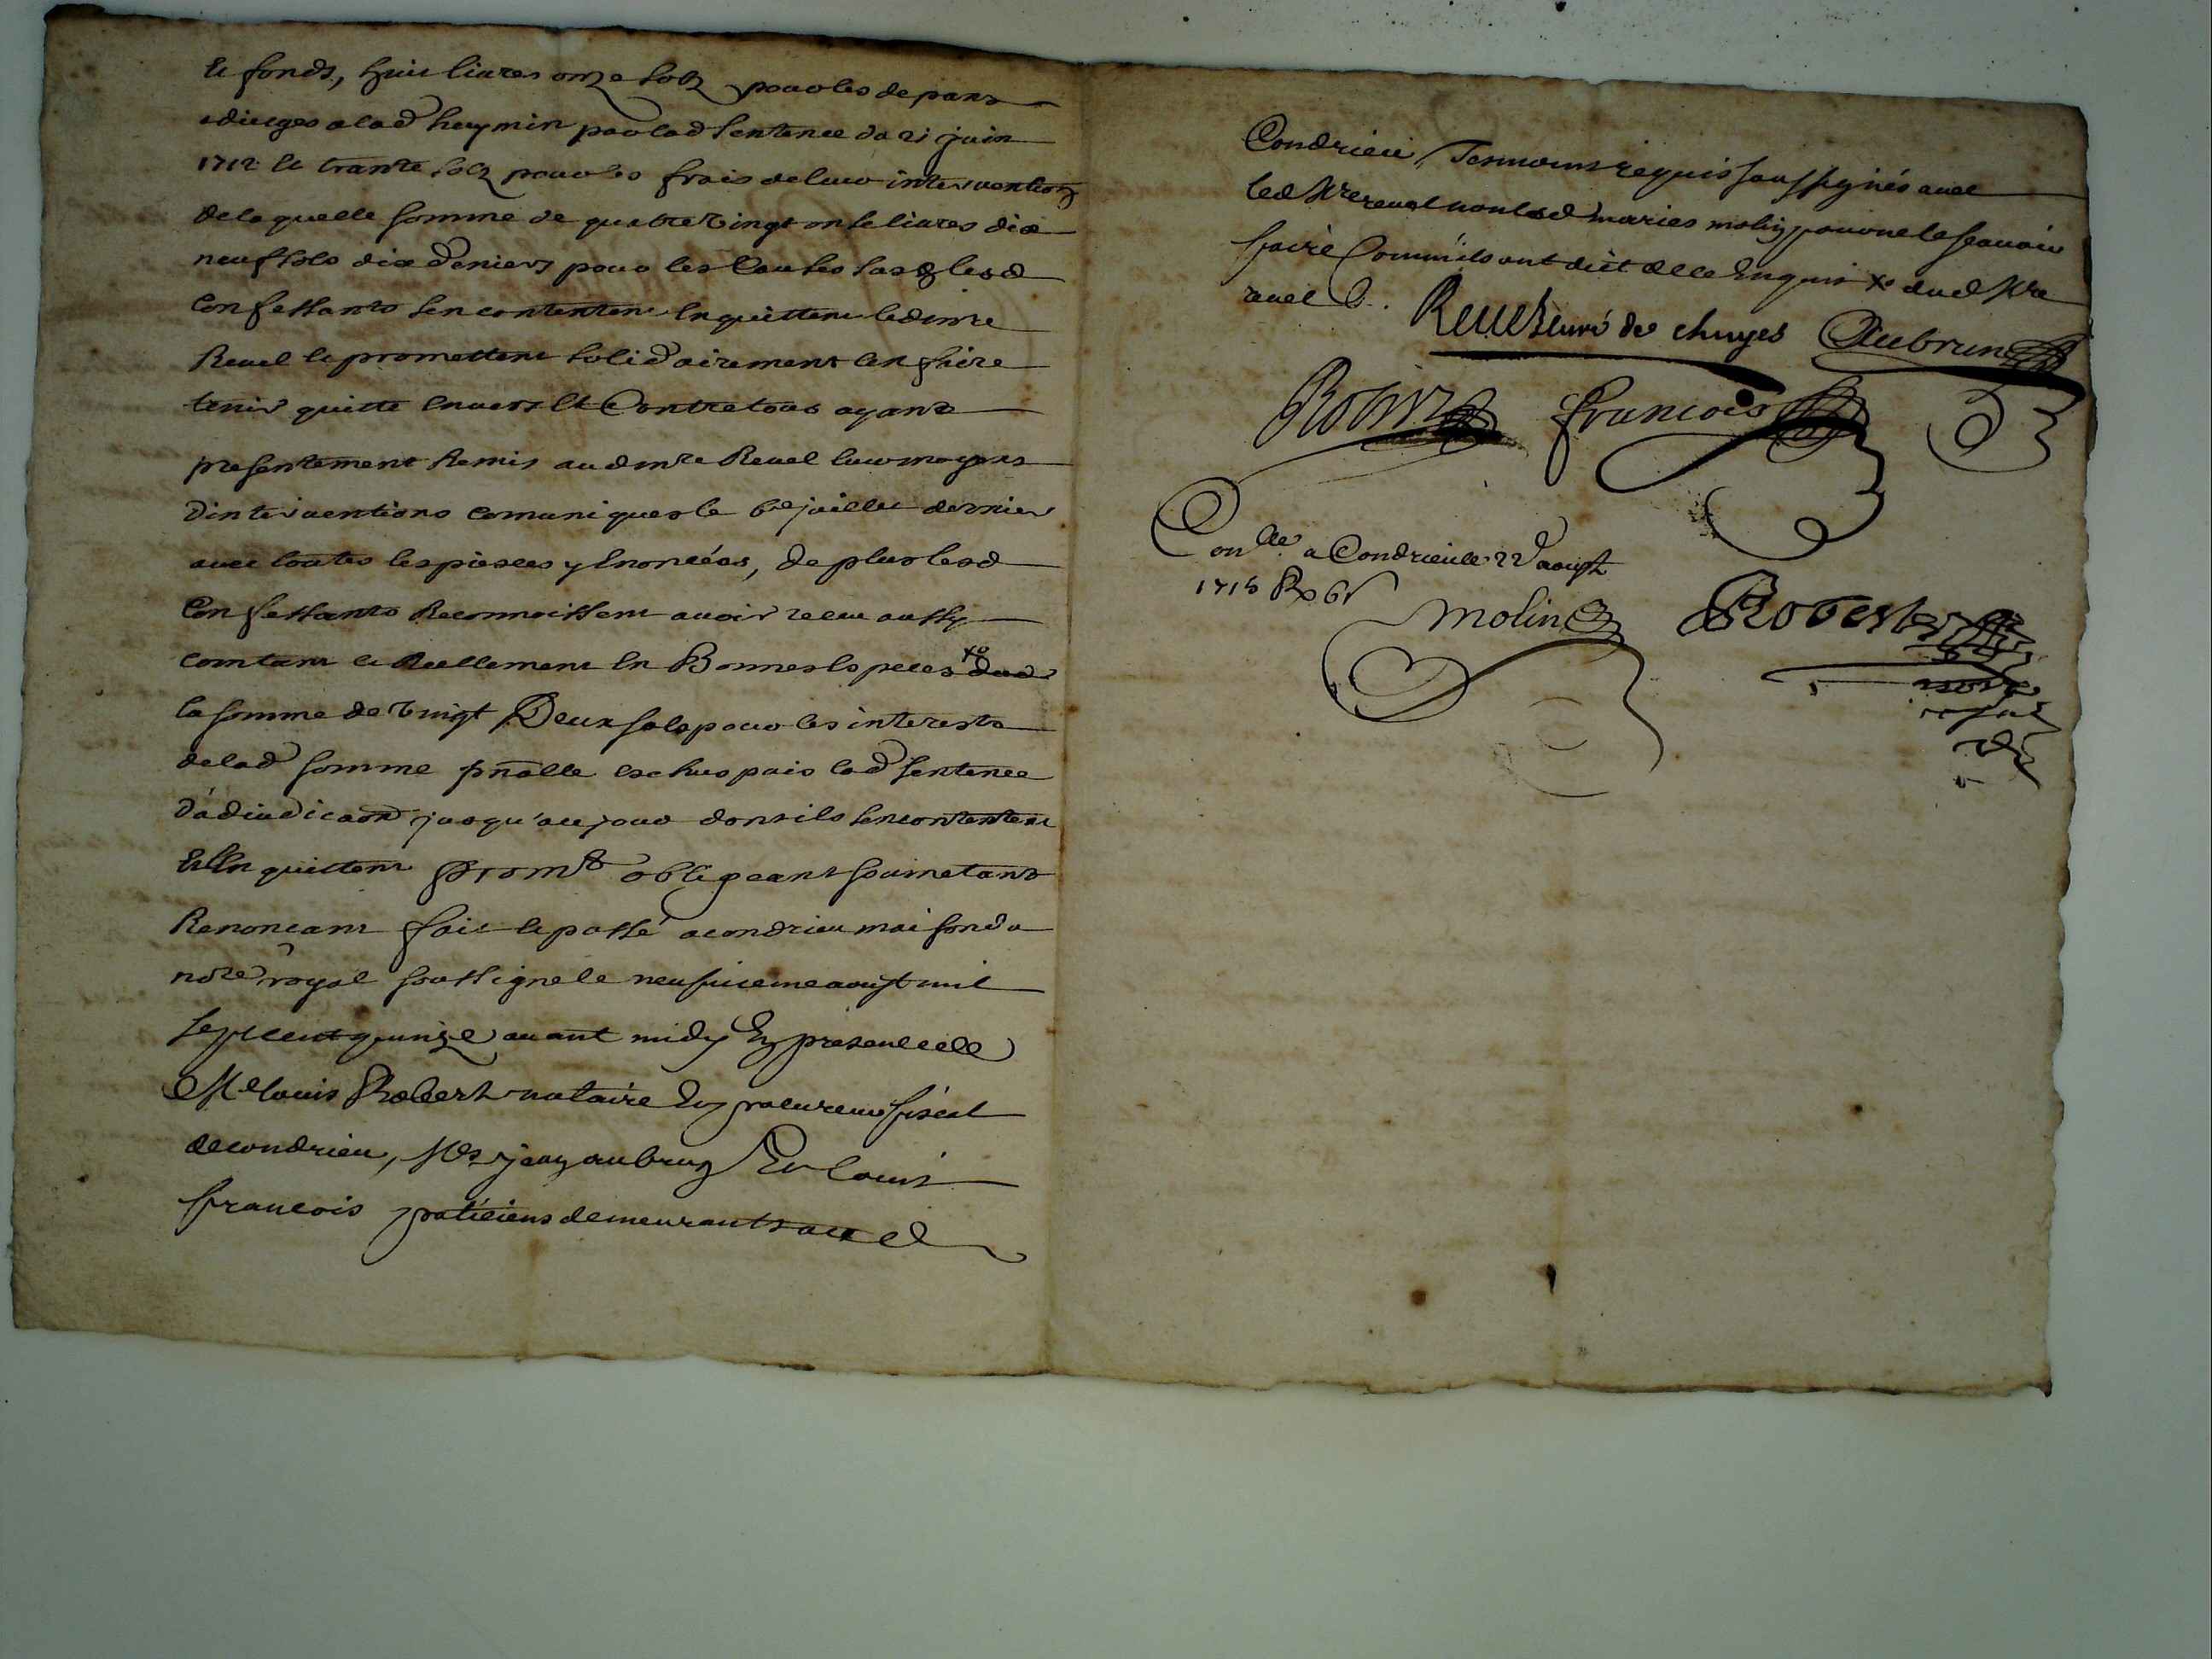 Et fonds, huit livres onze solz pour les depans
adiuges a lad heymin par lad sentence du 21 juin
1712 et trante solz pour les frais de leur intervention
de laquelle somme de quatre vingt onse livres dix
neuf sols dix deniers pour les causes susd lesd
confessants sen contentent en quittent led mre
Revel et promettent solidairement len faire
tenir quitte envers et contre tous ayant
presentement remis aud mre Revel leur moyens
d'interventions comuniques le 6e juillet dernier
avec toutes les pieces y enoncées, de plus lesd
confessants Reconnoissent avoir receu aussy
comtant et Reellement en Bonnes especes xo
la somme de vingt Deux sols pour les interests
de lad somme pnalle eschus puis lad sentence
d'adiudicaon jusqu'au jour dont ils sen contentent
Et en quittent Promt obligeant soumetant
Renoncant fait et passé a condrieu maison du
nore royal soussigne le neufuieme aoust mil
sept cent quinze avant midy En presence de
Me louis Robert notaire Et procureur fiscal
de condrieu, Mes jean aubrun Et louis
francois praticiens demeurants aud
Condrieu Tesmoins requis soussignés avec
led Mre revel non lesd maries molin pour ne le scavoir
faire Comm'ils ont dit de ce Enquis xo dud Mre
revel
Revel curé de chuyes Aubrun
Robin francois
Conlle a Condrieu le 22 aoust
1715 R 6s
Molin Robert